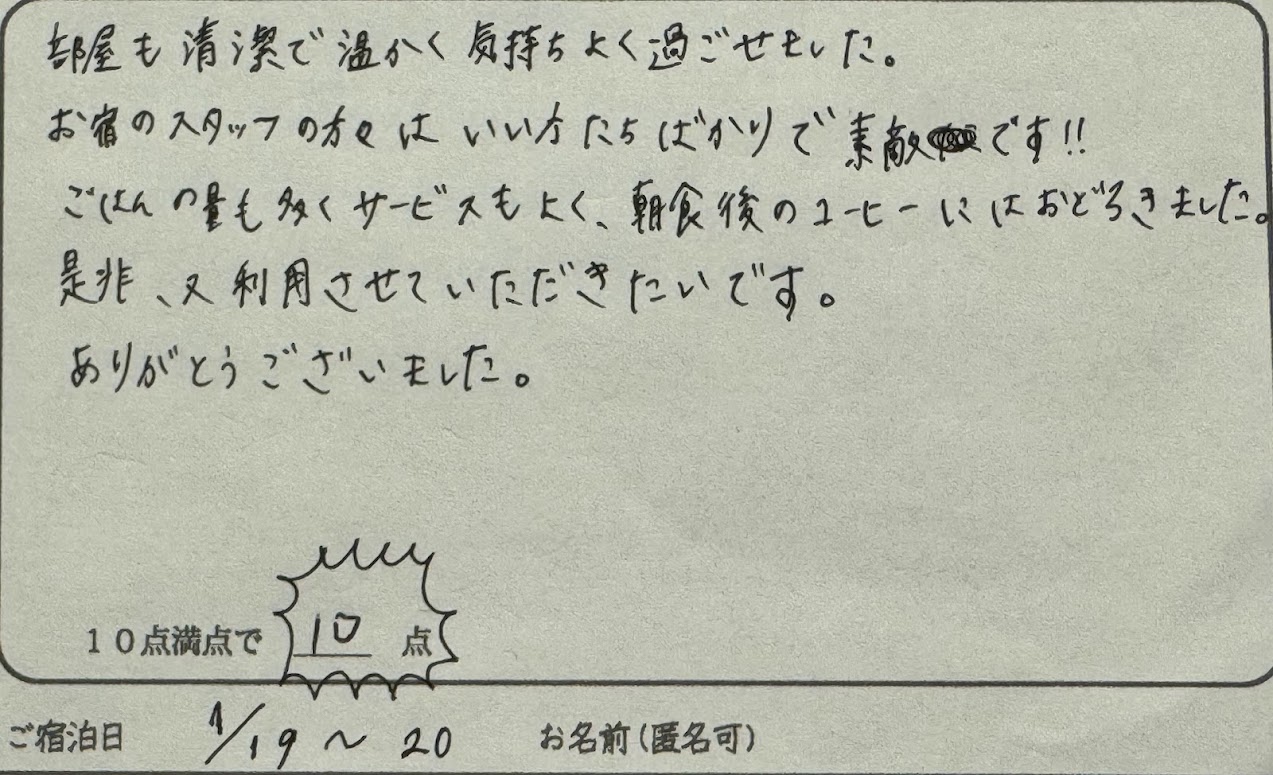 部屋も清潔で温かく気持ちよく過ごせました。
お宿のスタッフの方々はいい方たちばかりで素敵です!!
ごはんの量も多くサービスもよく、朝食後のコーヒーにはおどろきました。
是非、又利用させていただきたいです。
ありがとうございました。
10点満点で 10 点
ご宿泊日 1/19～20 お名前(匿名可)